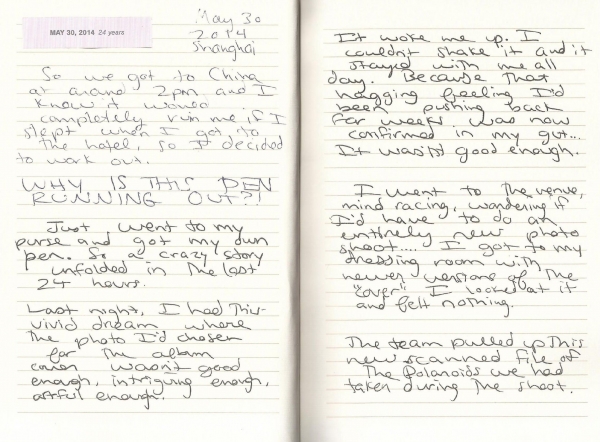 MAY 30, 2014 24 years
May 30
2014
Shanghai
So we got to China
at around 2pm and I
knew it would
completely ruin me if I
slept when I got to
the hotel, so I decided
to work out.
WHY IS THIS PEN
RUNNING OUT?!
Just went to my
purse and got my own
pen. So a crazy story
unfolded in the last
24 hours.
Last night, I had this
vivid dream where
the photo I'd chosen
for the album
cover wasn't good
enough, intriguing enough,
artful enough.
It woke me up. I
couldn't shake it and it
stayed with me all
day. Because that
nagging feeling I'd
been pushing back
for weeks was now
confirmed in my gut...
It wasn't good enough.
I went to the venue,
mind racing, wondering if
I'd have to do an
entirely new photo
shoot.... I got to my
dressing room with
newer versions of the
"cover". I looked at it
and felt nothing.
The team pulled up this
new scanned file of
the Polaroids we had
taken during the shoot.